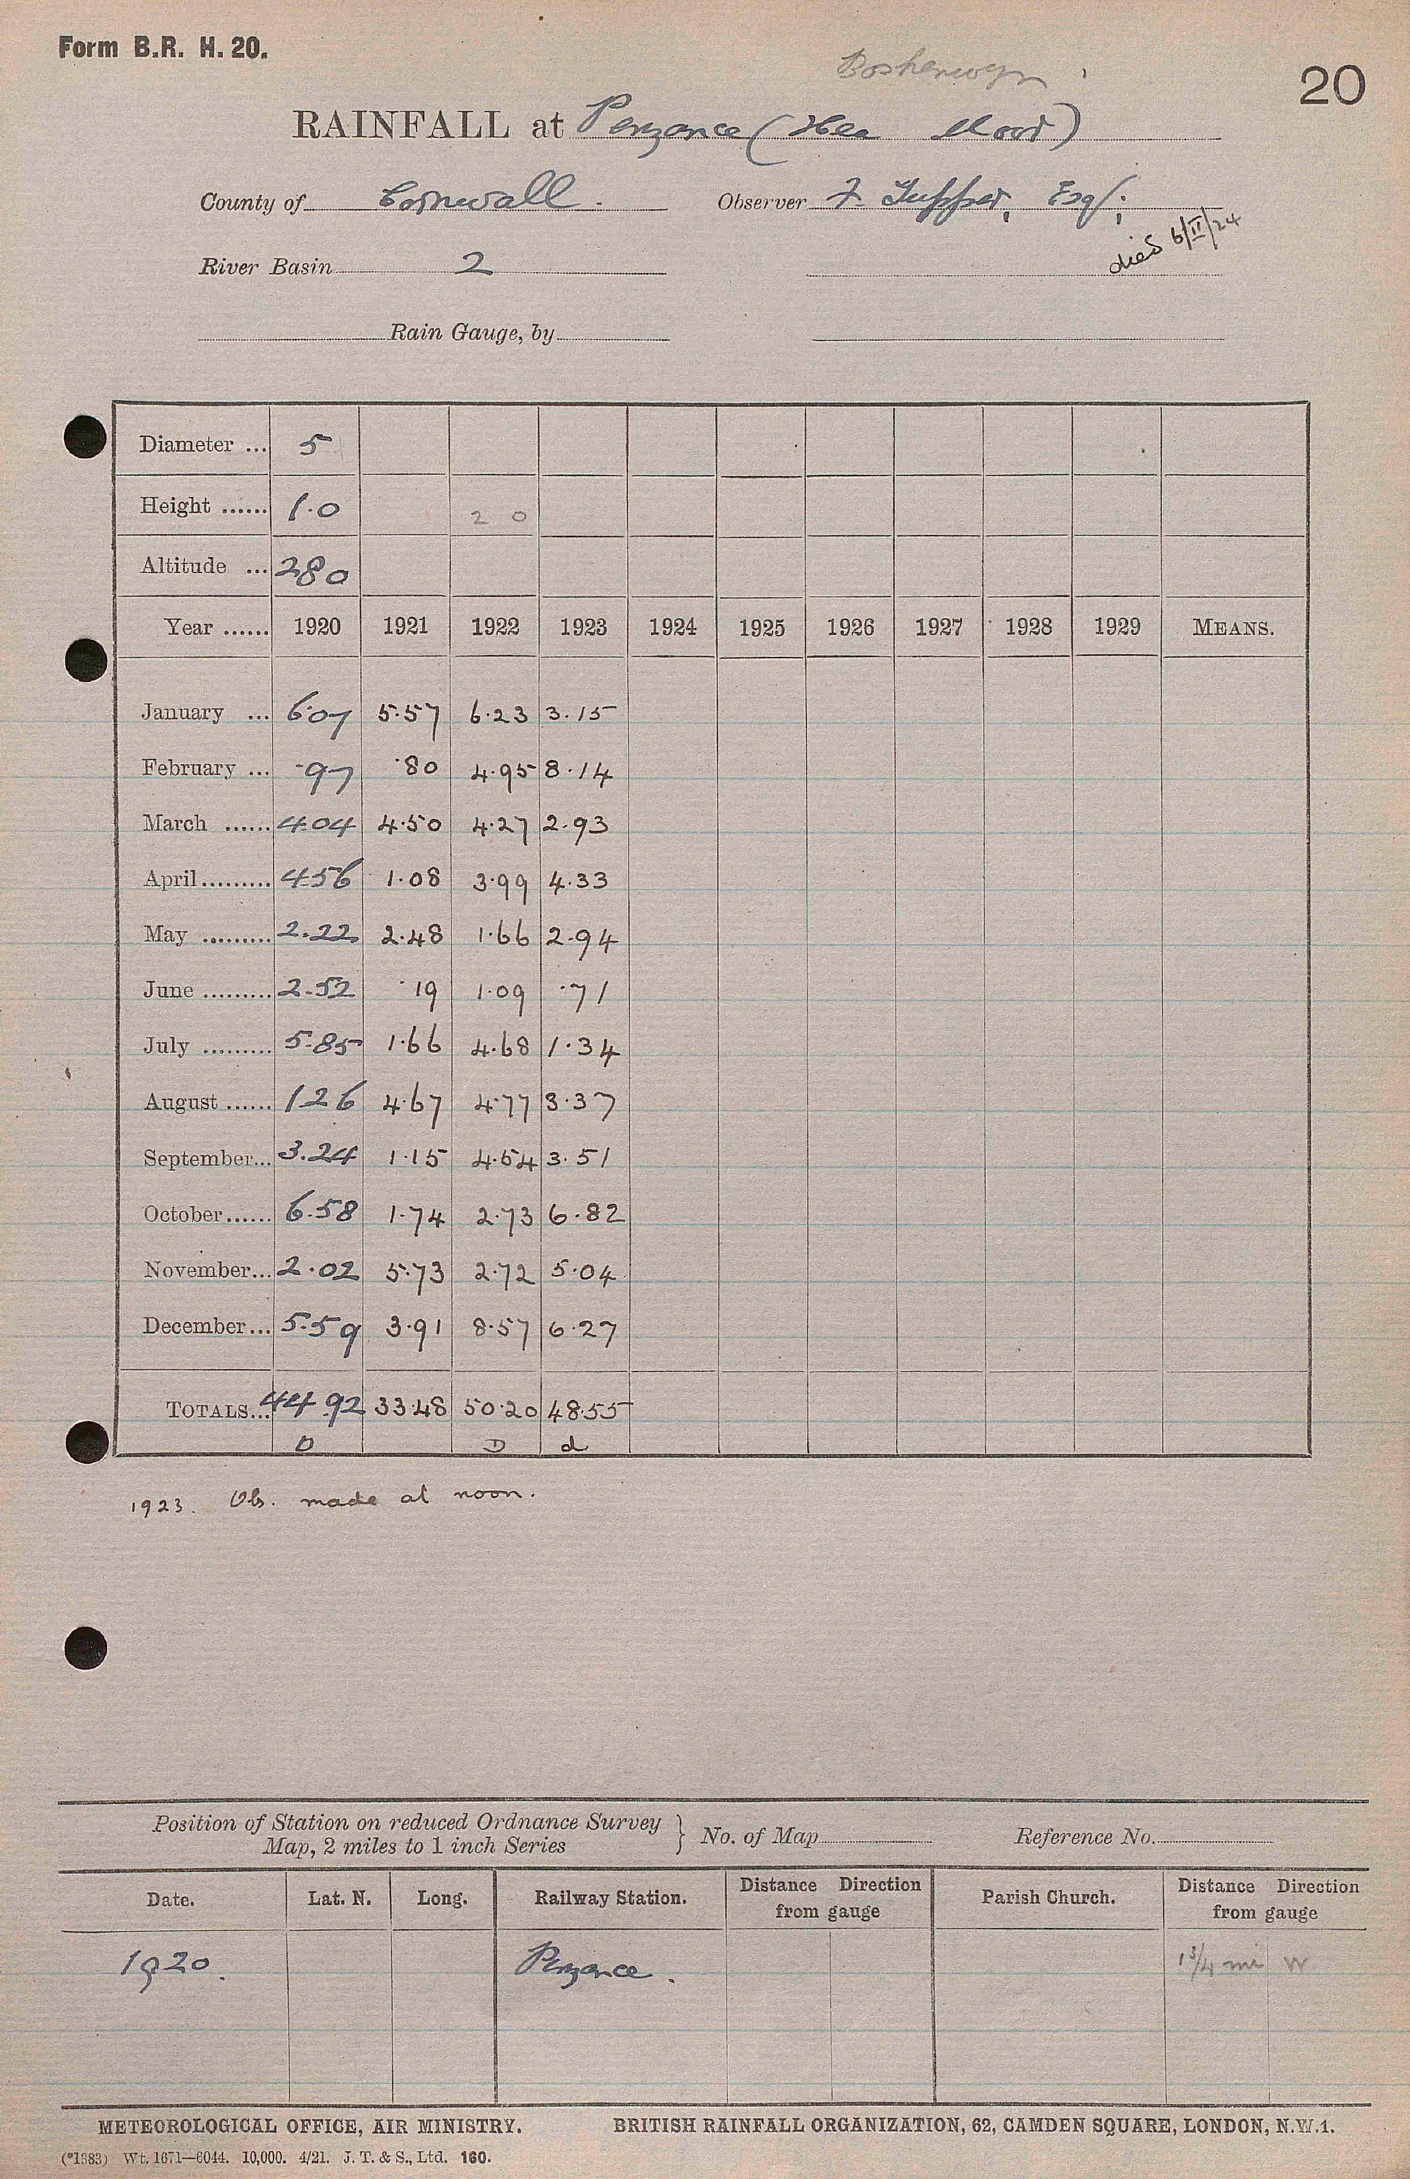 Form B.R. H. 20.
Boskenwyn
20
RAINFALL at Penzance (Hea Moor)
County of Cornwall. Observer F. Tupper, Esq.;
died 6/II/24
River Basin 2
Rain Gauge, by
Diameter ... 5
Height ...... 1.0 2 0
Altitude ... 280
Year ...... 1920 1921 1922 1923 1924 1925 1926 1927 1928 1929 MEANS.
January ... 6.07 5.57 6.23 3.15
February ... .97 .80 4.95 8.14
March ...... 4.04 4.50 4.27 2.93
April......... 4.56 1.08 3.99 4.33
May ......... 2.22 2.48 1.66 2.94
June ......... 2.52 .19 1.09 .71
July ......... 5.85 1.66 4.68 1.34
August ...... 1.26 4.67 4.77 3.37
September... 3.24 1.15 4.54 3.51
October...... 6.58 1.74 2.73 6.82
November... 2.02 5.73 2.72 5.04
December... 5.59 3.91 8.57 6.27
TOTALS... 44.92 33.48 50.20 48.55
D D d
1923. Obs. made at noon.
Position of Station on reduced Ordnance Survey
Map, 2 miles to 1 inch Series } No. of Map Reference No.
Date. Lat. N. Long. Railway Station. Distance Direction from gauge Parish Church. Distance Direction from gauge
1920. Penzance. 1 3/4 mi W
METEOROLOGICAL OFFICE, AIR MINISTRY. BRITISH RAINFALL ORGANIZATION, 62, CAMDEN SQUARE, LONDON, N.W.1.
(*1383) Wt. 1671—6044. 10,000. 4/21. J. T. & S., Ltd. 160.